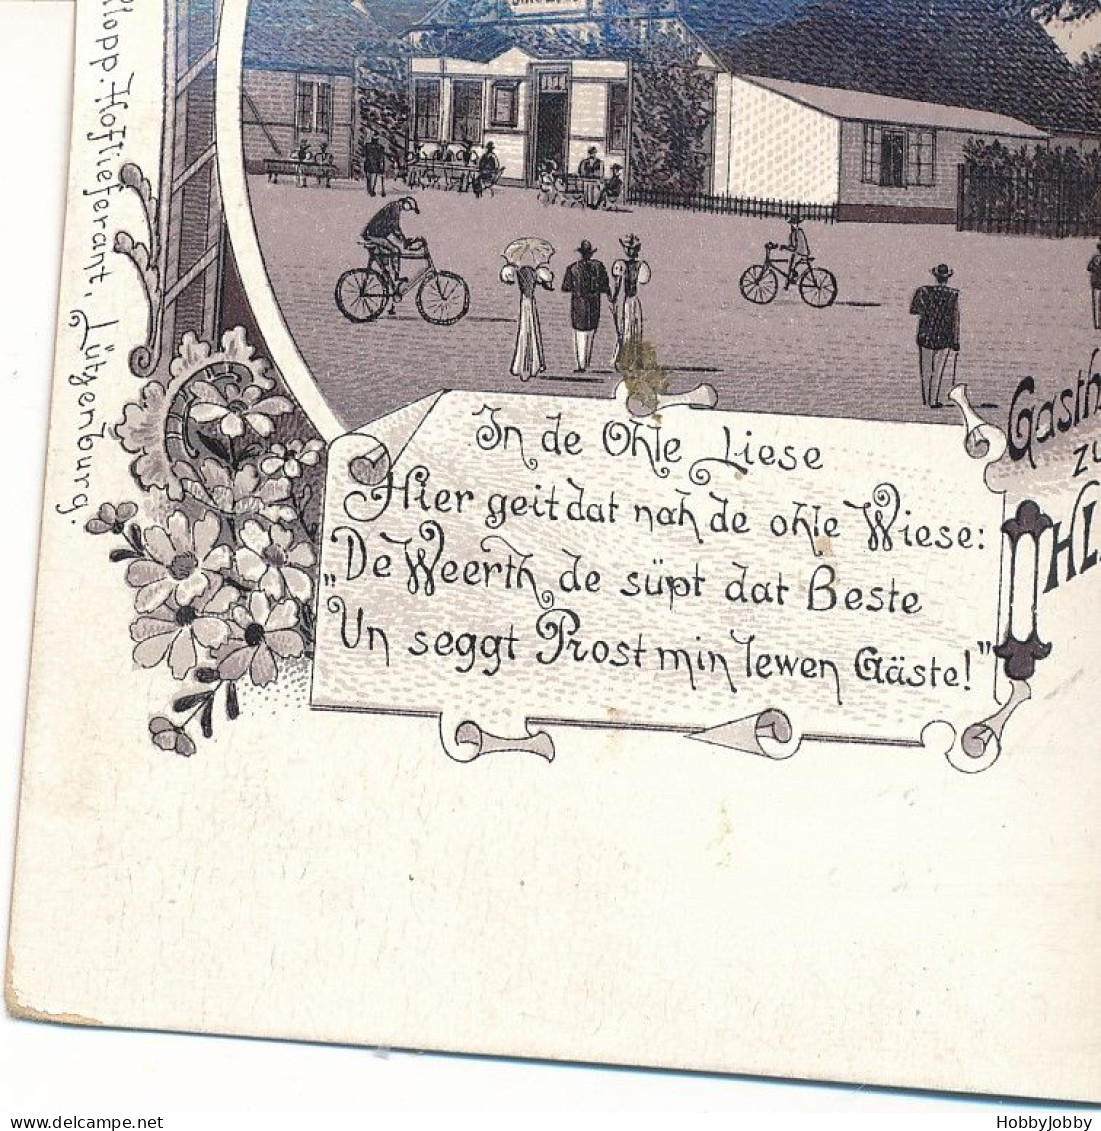 Hoflieferant, Lütgenburg.
In de Ohle Liese
Hier geit dat nah de ohle Wiese:
„De Weerth de süpt dat Beste
Un seggt Prost min lewen Gäste!"
Gasth
zu
OHL
HobbyJobby